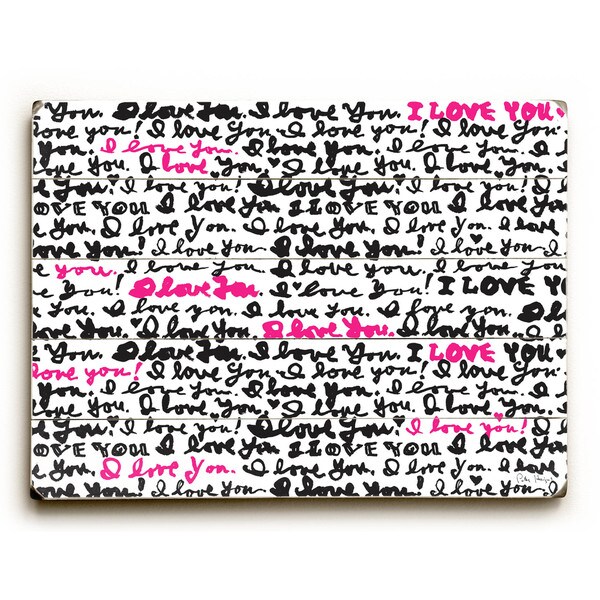 You. I love You. I love You. I LOVE YOU
love you! I love You. I love You. I love You.
You. I love you. I love you. I love you.
love You. I love You. I love You. I love You.
I love you! I love You. I love you!
LOVE YOU I love You. I LOVE YOU. I love You.
You. I love You. I love you. I love
I love You! I love You. I love You. I love You.
you. I love you. I love You. I love
I love You! I love You. I love You! I LOVE YOU
you. I love you. I love you. I love you.
love You. I love You. I love You. I love You.
You. I love You. I love You. I LOVE YOU
love you! I love You. I love You. I love You.
You. I love you. I love you. I love you.
love You. I love You. I love You. I love You.
I love You! I love You. I love you!
LOVE YOU I love You. I LOVE YOU. I love You.
You. I love You. I love you. I love
I love You! I love You. I love You. I love You.